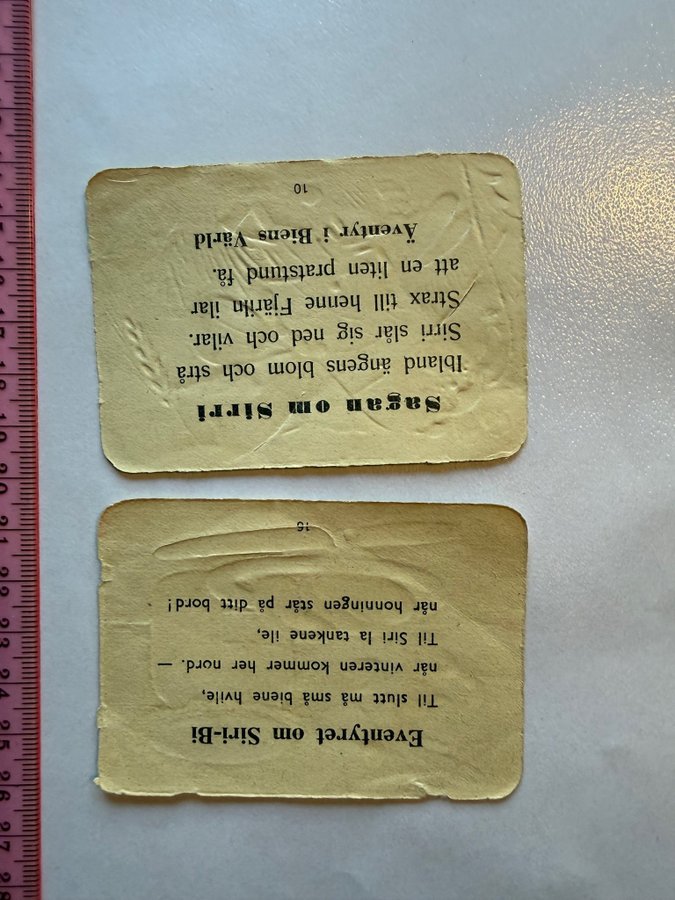 Eventyret om Siri-Bi
Til slutt må små biene hvile,
når vinteren kommer her nord. —
Til Siri la tankene ile,
når honningen står på ditt bord!
16
Sagan om Sirri
Ibland ängens blom och strå
Sirri slår sig ned och vilar.
Strax till henne Fjäriln ilar
att en liten pratstund få.
Äventyr i Biens Värld
10
17
18
19
20
21
22
23
24
25
26
27
28